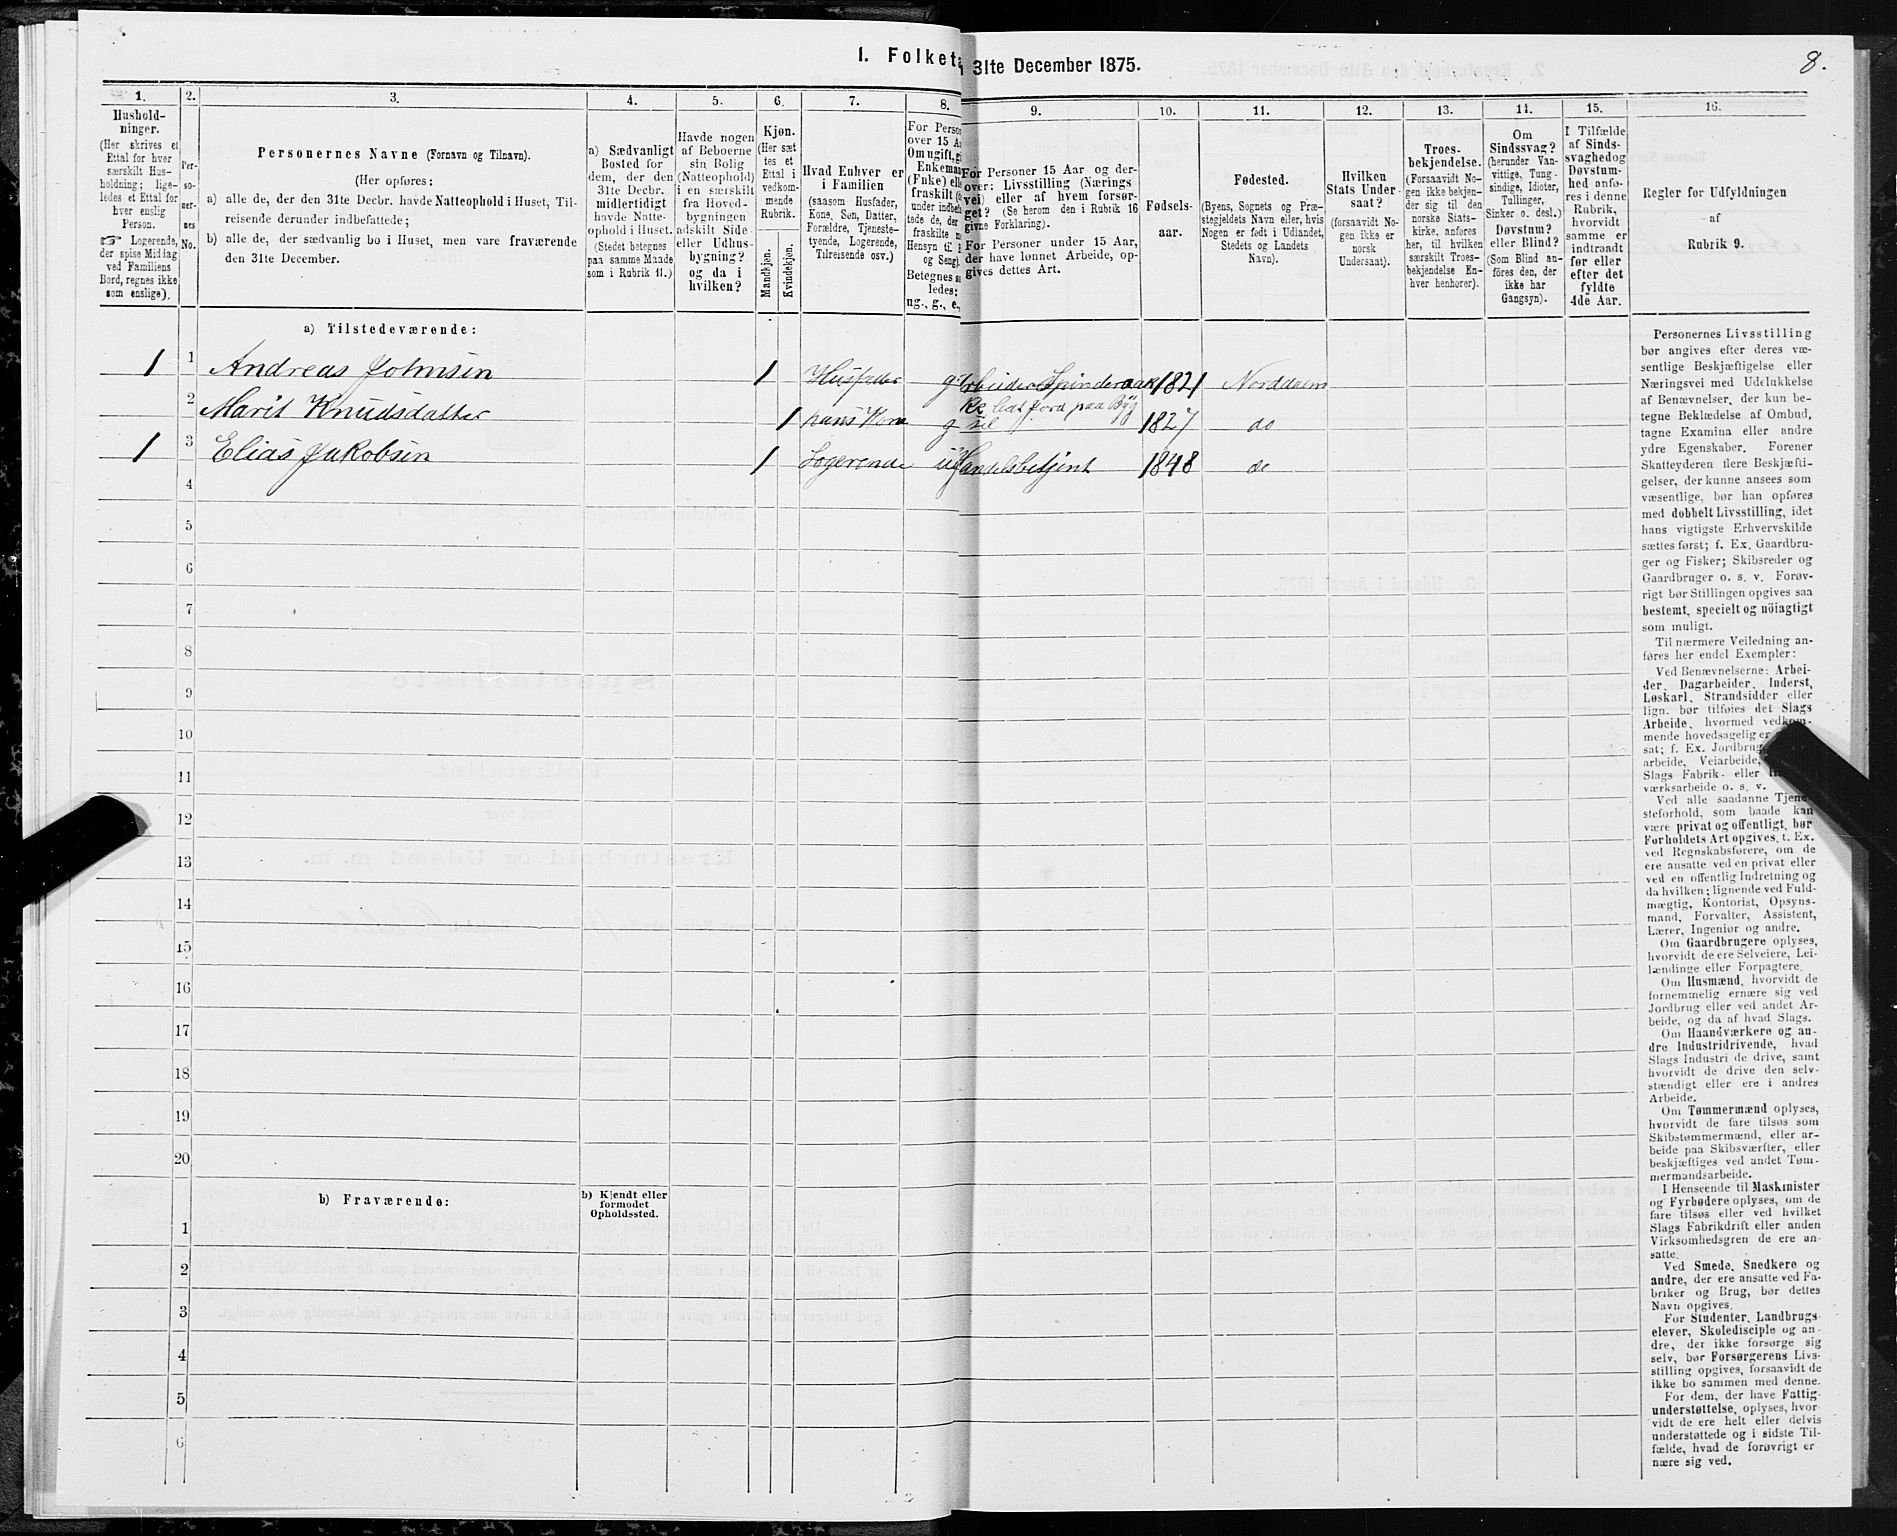 I. Folketæ
31te December 1875.
8.
1.
2.
3.
4.
5.
6.
7.
8.
9.
10.
11.
12.
13.
14.
15.
16.
Hushold-
ninger.
(Her skrives et
Ettal for hver
særskilt Hus-
holdning; lige-
ledes et Ettal for
hver enslig
Person.
☞ Logerende,
der spise Middag
ved Familiens
Bord, regnes ikke
som enslige).
Per-
so-
ner-
nes
No.
Personernes Navne (Fornavn og Tilnavn).
(Her opføres:
a) alle de, der den 31te Decbr. havde Natteophold i Huset, Til-
reisende derunder indbefattede;
b) alle de, der sædvanlig bo i Huset, men vare fraværende
den 31te December.
a) Sædvanligt
Bosted for
dem, der den
31te Decbr.
midlertidigt
havde Natte-
ophold i Huset.
(Stedet betegnes
paa samme Maade
som i Rubrik 11.)
Havde nogen
af Beboerne
sin Bolig
(Natteophold)
i en særskilt
fra Hoved-
bygningen
adskilt Side-
eller Udhus-
bygning?
og da i
hvilken?
Kjøn.
(Her sæt-
tes et
Ettal i
vedkom-
mende
Rubrik.
Mandkjøn.
Kvindekjøn.
Hvad Enhver er
i Familien
(saasom Husfader,
Kone, Søn, Datter,
Forældre, Tjeneste-
tyende, Logerende,
Tilreisende osv.)
For Person
over 15 A
Om ugift, g
Enkeman
(Fnke) elle
fraskilt (
under indbef
tede de, der
fraskilte
Hensyn til
og Seng).
Betegnes s
ledes:
ug., g., e.,
For Personer 15 Aar og der-
over: Livsstilling (Nærings
vei) eller af hvem forsør-
get? (Se herom den i Rubrik 16
givne Forklaring).
For Personer under 15 Aar,
der have lønnet Arbeide, op-
gives dettes Art.
Fødsels-
aar.
Fødested.
(Byens, Sognets og Præ-
stegjeldets Navn eller, hvis
Nogen er født i Udlandet,
Stedets og Landets
Navn).
Hvilken
Stats Under-
saat?
(forsaavidt No-
gen ikke er
norsk
Undersaat).
Troes-
bekjendelse.
(Forsaavidt No-
gen ikke bekjen-
der sig til den
norske Stats-
kirke, anføres
her, til hvilken
særskilt Troes-
bekjendelse En-
hver henhører).
Om
Sindssvag?
(herunder Van-
vittige, Tung-
sindige, Idioter,
Tullinger,
Sinker o. desl.)
Døvstum?
eller Blind?
(Som Blind an-
føres den, der
ikke har
Gangsyn).
I Tilfælde
af Sinds-
svaghed og
Døvstum-
hed anfø-
res i denne
Rubrik,
hvorvidt
samme er
indtraadt
før eller
efter det
fyldte
4de Aar.
Regler for Udfyldningen
af
Rubrik 9.
a) Tilstedeværende:
1 1 Andreas Johnsen 1 Husfader g Arbeider 1821 Norddalen
2 Marit Knudsdatter 1 hans Kone g Jord paa Byg sel 1827 do
1 3 Elias Jakobsen 1 Logerende ug Handelsbetjent 1848 do
4
5
6
7
8
9
10
11
12
13
14
15
16
17
18
19
20
b) Fraværende:
b) Kjendt eller
formodet
Opholdssted.
1
2
3
4
5
6
Personernes Livsstilling
bør angives efter deres væ-
sentlige Beskjæftigelse eller
Næringsvei med Udelukkelse
af Benævnelser, der kun be-
tegne Beklædelse af Ombud,
tagne Examina eller andre
ydre Egenskaber. Forener
Skatteyderen flere Beskjæfti-
gelser, der kunne ansees som
væsentlige, bør han opføres
med dobbelt Livsstilling, idet
hans vigtigste Erhvervskilde
sættes først; f. Ex. Gaardbru-
ger og Fisker; Skibsreder og
Gaardbruger o. s. v. Forøv-
rigt bør Stillingen opgives saa
bestemt, specielt og nöiagtigt
som muligt.
Til nærmere Veiledning an-
føres her endel Exempler:
Ved Benævnelserne: Arbei-
der, Dagarbeider, Inderst,
Løskarl, Strandsidder eller
lign. bør tilføies det Slags
Arbeide, hvormed vedkom-
mende hovedsagelig er
sat; f. Ex. Jordbrug
arbeide, Veiarbeide,
Slags Fabrik- eller
værksarbeide o. s. v.
Ved alle saadanne Tjene-
steforhold, som baade kan
være privat og offentligt, bør
Forholdets Art opgives, t. Ex.
ved Regnskabsførere, om de
ere ansatte ved en privat eller
ved en offentlig Indretning og
da hvilken; lignende ved Fuld-
mægtig, Kontorist, Opsyns-
mand, Forvalter, Assistent,
Lærer, Ingeniør og andre.
Om Gaardbrugere oplyses,
hvorvidt de ere Selveiere, Lei-
lændinge eller Forpagtere.
Om Husmænd, hvorvidt de
fornemmelig ernære sig ved
Jordbrug eller ved andet Ar-
beide, og da af hvad Slags.
Om Haandværkere og an-
dre Industridrivende, hvad
Slags Industri de drive, samt
hvorvidt de drive den selv-
stændigt eller ere i andres
Arbeide.
Om Tømmermænd oplyses,
hvorvidt de fare tilsøs som
Skibstømmermænd, eller ar-
beide paa Skibsværfter, eller
beskjæftiges ved andet Tøm-
mermandsarbeide.
I Henseende til Maskinister
og Fyrbødere oplyses, om de
fare tilsøs eller ved hvilket
Slags Fabrikdrift eller anden
Virksomhedsgren de ere an-
satte.
Ved Smede, Snedkere og
andre, der ere ansatte ved Fa-
briker og Brug, bør dettes
Navn opgives.
For Studenter, Landbrugs-
elever, Skoledisciple og an-
dre, der ikke forsørge sig
selv, bør Forsørgerens Livs-
stilling opgives, forsaavidt de
ikke bo sammen med denne.
For dem, der have Fattig-
understøttelse, oplyses, hvor-
vidt de ere helt eller delvis
understøttede og i sidste Til-
fælde, hvad de forøvrigt er-
nære sig ved.